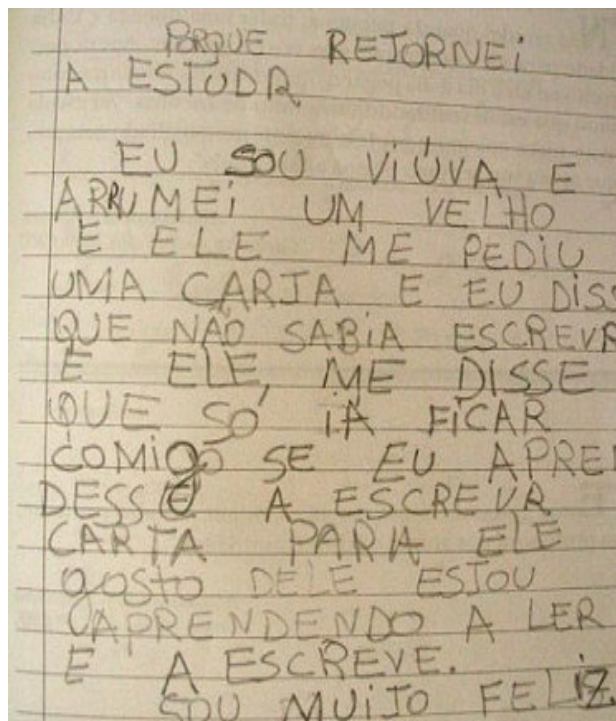 PORQUE RETORNEI
A ESTUDA
EU SOU VIÚVA E
ARRUMEI UM VELHO
E ELE ME PEDIU
UMA CARTA E EU DISS
QUE NÃO SABIA ESCREVR
E ELE, ME DISSE
QUE SÓ IA FICAR
COMIGO SE EU APREN
DESSE A ESCREVR
CARTA PARA ELE
gosto DELE ESTOU
APRENDENDO A LER
E A ESCREVE.
SOU MUITO FELIZ.